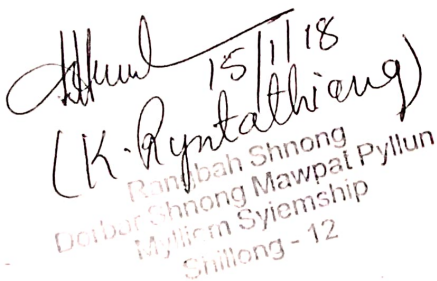 15/1/18
(K. Ryntathiang)
Rangbah Shnong
Dorbar Shnong Mawpat Pyllun
Mylliem Syiemship
Shillong - 12